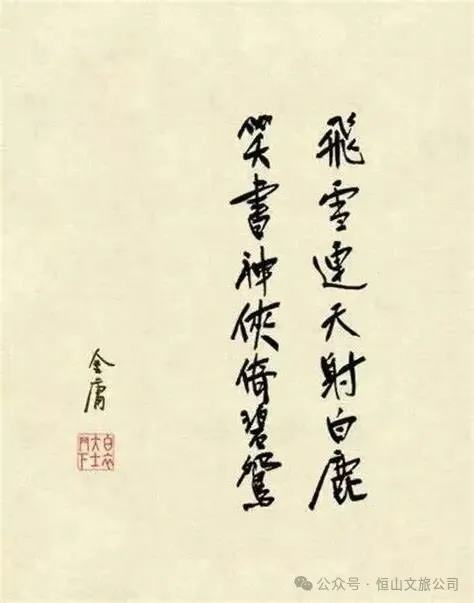 飛雪連天射白鹿
笑書神俠倚碧鴛
金庸
白衣大士門下
公众号·恒山文旅公司